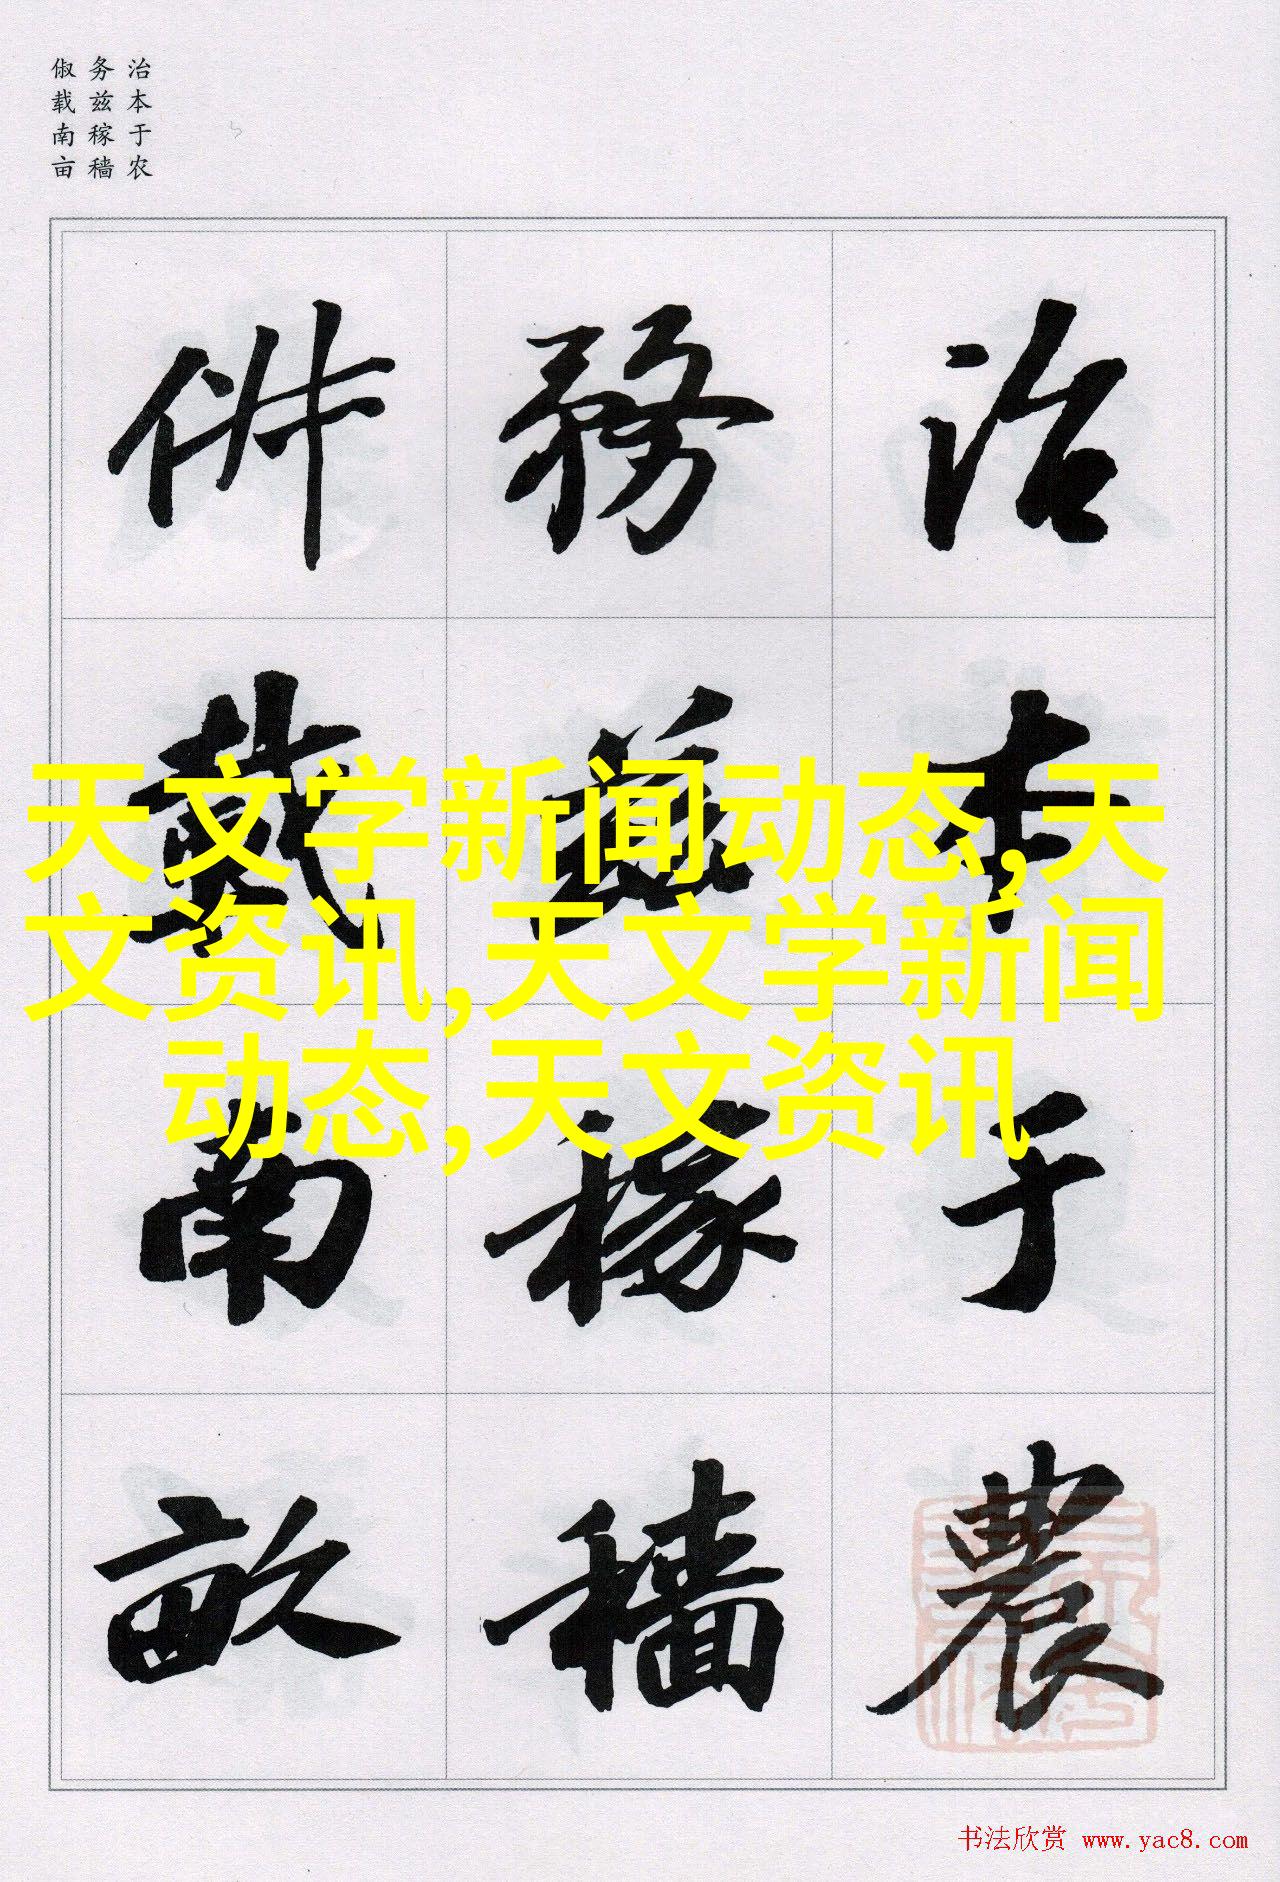 治本于农
务兹稼穑
俶载南亩
治本于農
務茲稼穡
俶載南畝
天文学新闻动态,天
文资讯,天文学新闻
动态,天文资讯
书法欣赏 www.yac8.com